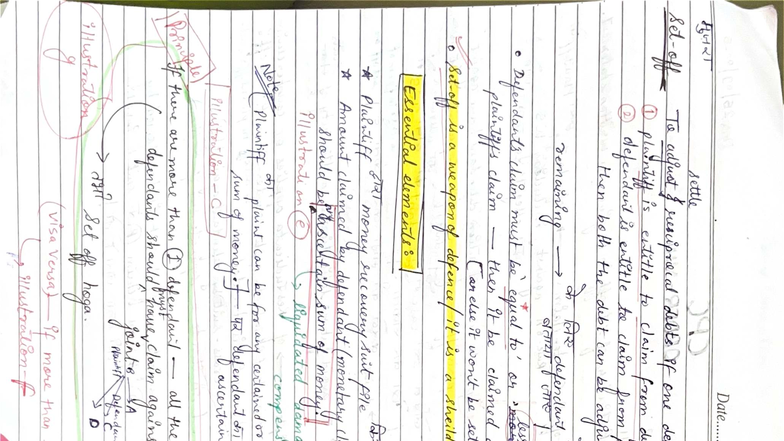 Date......
settle
मुजरा
Set-off To adjust reciprocal debts if one de
① plaintiff is entitle to claim from de
② defendant is entitle to claim from p
then both the debt can be adj
remaining → के लिए defendant
• Defendants claim must be 'equal to' or
plaintiffs claim — then it be claimed a
(or else it won't be set
• Set-off is a weapon of defence/it is a sheild
Essential elements:
★ Plaintiff money recovery suit file
★ Amount claimed by defendant (monetary cl
should be ascertain sum of money.
illustration ⓔ → liquidated dama
compens
Note Plaintiff का plaint can be for any certained or
sum of money — पर defendant का
illustration - C
ascertain
Principle
If there are more than ① defendant — all the
defendants should must have claim agains
jointly
A
Plaintiff Defendan
C
D
→ तभी Set off hoga.
illustration
g
(Visa Versa) — if more than
→ illustration - f